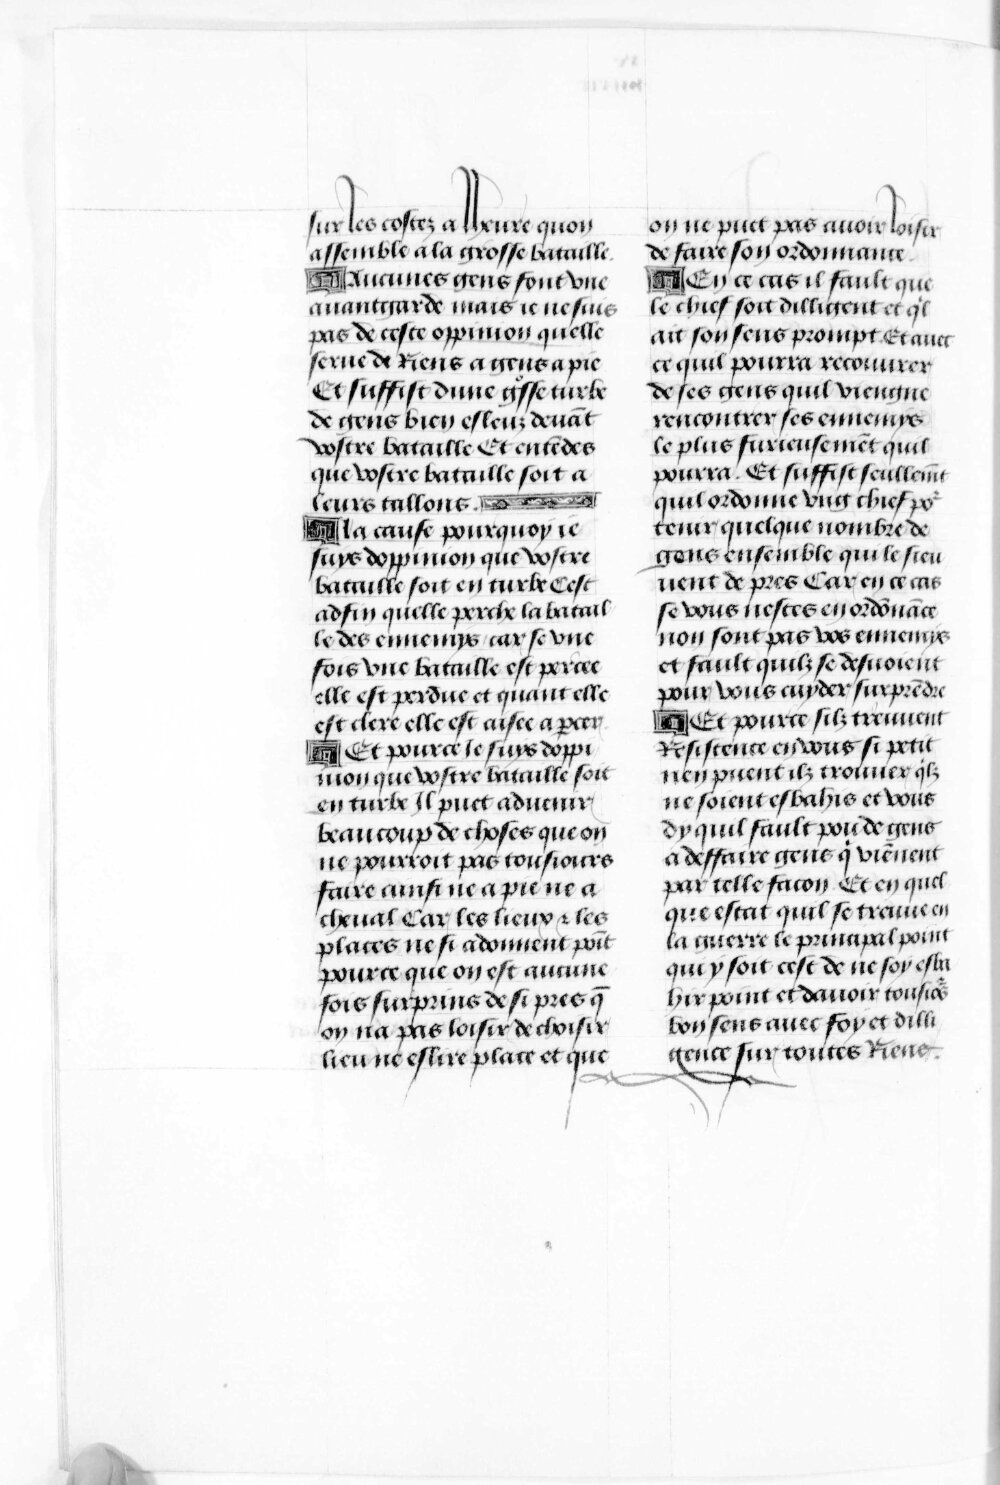 sur les costez a lheure quon
assemble a la grosse bataille.
Aucunes gens font vne
auantgarde mais ie ne suis
pas de ceste oppinion quelle
serue de Riens a gens a pie
Et suffist dune gͦsse turbe
de gens bien esleuz deuāt
vostre bataille Et entēdes
que vostre bataille soit a
leurs tallons.
la cause pourquoy ie
suys doppinion que vostre
bataille soit en turbe Cest
adfin quelle perche la batail
le des ennemys car se vne
fois vne bataille est percee
elle est perdue et quant elle
est clere elle est aisee a pcer
Et pource le suys doppi
nion que vostre bataille soit
en turbe Il puet aduenir
beaucoup de choses que on
ne pourroit pas tousiours
faire ainsi ne a pie ne a
cheual Car les lieux ⁊ les
places ne si adonnent poīt
pource que on est aucune
fois surprins de si pres q̄
on na pas loisir de choisir
lieu ne eslire place et que
on ne puet pas auoir loisir
de faire son ordonnance.
En ce cas il fault que
le chief soit dilligent et qͥl
ait son sens prompt. Et auec
ce quil pourra recouurer
de ses gens quil viengne
rencontrer ses ennemys
le plus furieusemēt quil
pourra. Et suffist seullemt̄
quil ordonne vng chief poͬ
tenir quelque nombre de
gens ensemble qui le sieu
uent de pres Car en ce cas
se vous nestes en ordōnāce
non sont pas vos ennemys
et fault quilz se desuoient
pour vous cuyder surprēdre
Et pource silz treuuent
Resistence en vous si petit
nen puent ilz trouuer qͥlz
ne soient esbahis et vous
dy quil fault pou de gens
a deffaire gens qͥ viēnent
par telle facon Et en quel
que estat quil se treuue en
la guerre le principal point
qui y soit cest de ne soy esba
hir point et dauoir tousioͬs
bon sens auec foy et dilli
gence sur toutes Riens.